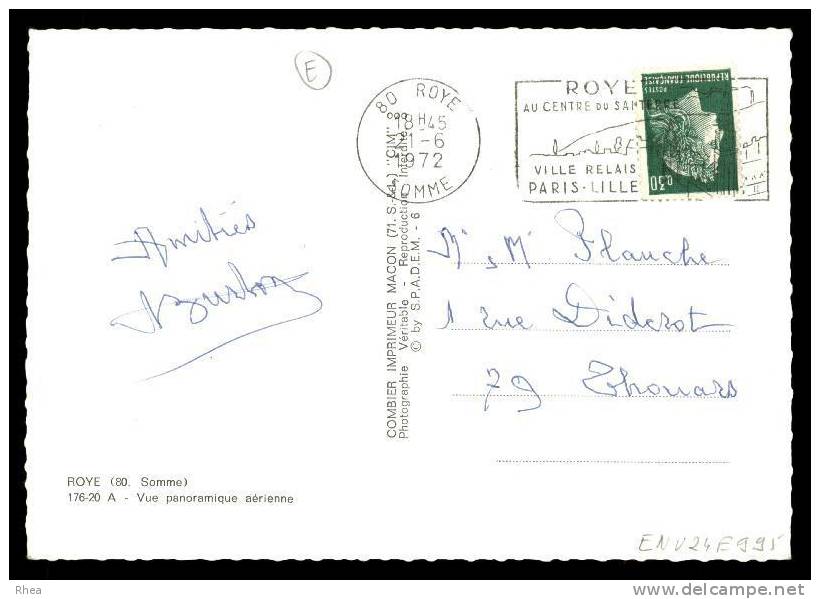 E
80 ROYE
18H45
1-6
1972
SOMME
ROYE
AU CENTRE DU SANTERRE
VILLE RELAIS
PARIS-LILLE
RÉPUBLIQUE FRANÇAISE
POSTES
0,30
Amitiés
COMBIER IMPRIMEUR MACON (71. S.-&-L.) "CIM"
Photographie Véritable - Reproduction Interdite
© by S.P.A.D.E.M. - 6
Mr & Me Planche
1 rue Diderot
79 Thouars
ROYE (80. Somme)
176-20 A - Vue panoramique aérienne
ENV24E995
Rhea
www.delcampe.net